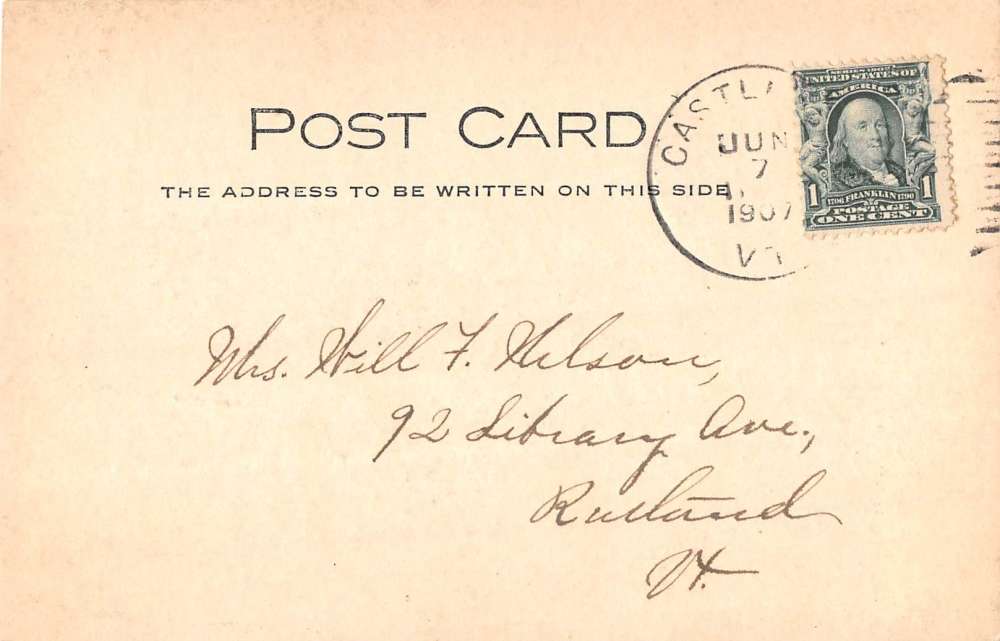 POST CARD
THE ADDRESS TO BE WRITTEN ON THIS SIDE
JUN
7
1907
VT
SERIES 1902
UNITED STATES OF
AMERICA
1 1706 FRANKLIN 1790 1
POSTAGE
ONE CENT
Mrs. Will F. Nelson,
92 Library Ave.,
Rutland
Vt.